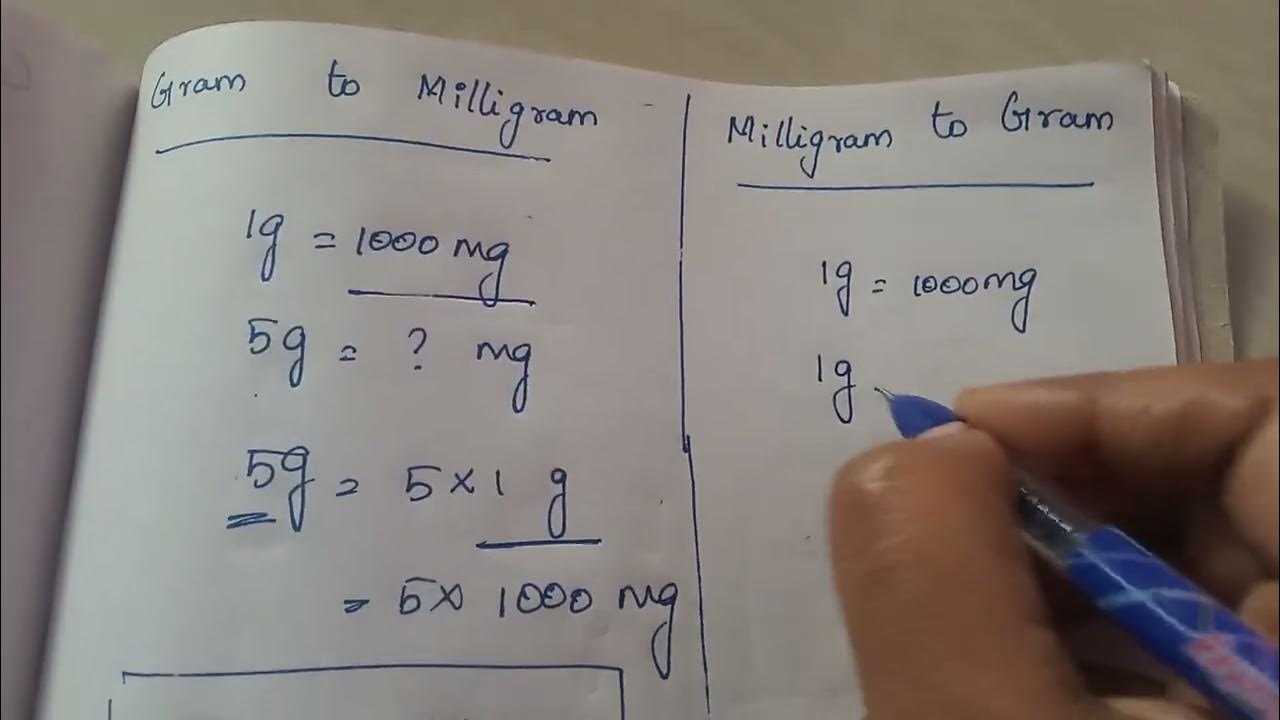 Gram to Milligram
1g = 1000 mg
5g = ? mg
5g = 5 × 1 g
= 5 × 1000 mg
Milligram to Gram
1g = 1000mg
1g